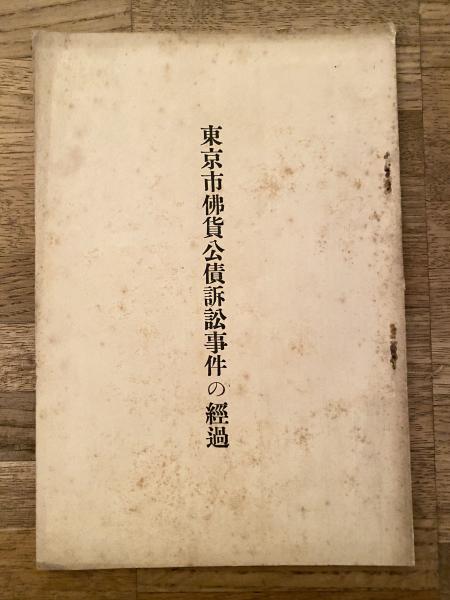 東京市佛貨公債訴訟事件の經過